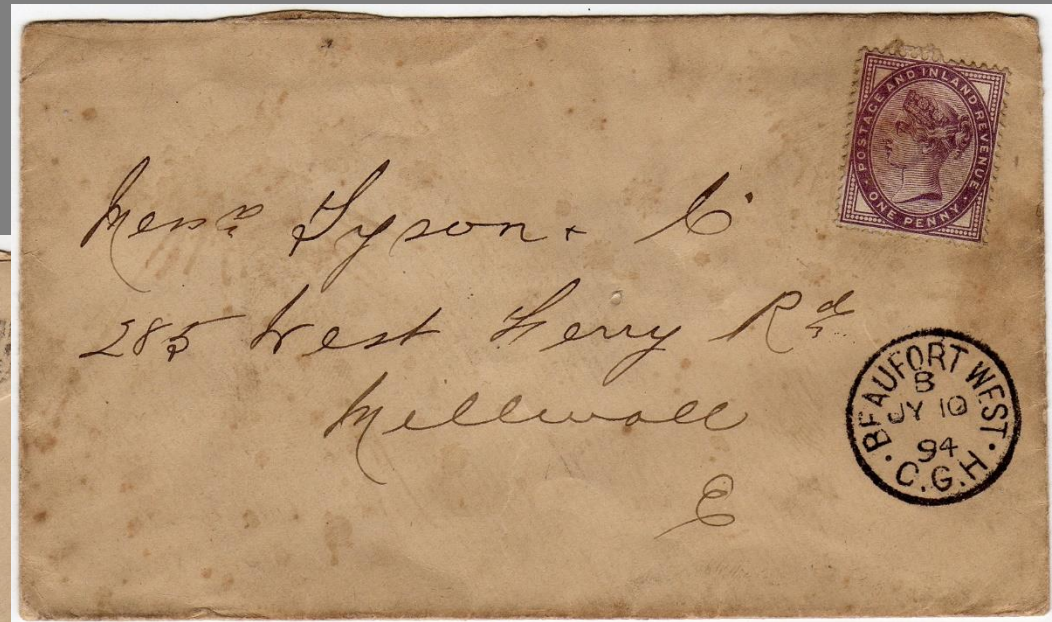 POSTAGE AND INLAND REVENUE
ONE PENNY
Messrs Tyson & Co
285 West Ferry Rd
Millwall
E
BEAUFORT WEST
B
JY 10
94
C.G.H.